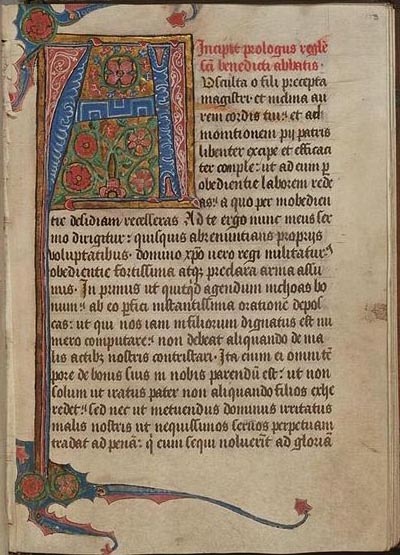 Incipit prologus regle
sci benedicti abbatis.
Usculta o fili precepta
magistri. et inclina au
rem cordis tui. et ad
monitionem pij patris
libenter excipe et efficaci
ter comple. ut ad eum p
obedientie laborem rede
as. a quo per inobedien
tie desidiam recesseras Ad te ergo nunc meus ser
mo dirigitur. quisquis abrenuntians proprijs
voluptatibus. domino xpo vero regi militatur9
obedientie fortissima atq3 preclara arma assu
mis. In primis ut quitqd agendum inchoas bo
num. ab eo pfici instantissima oratione depos
cas. ut qui nos iam in filiorum dignatus est nu
mero computare. non debeat aliquando de ma
lis actib3 nostris contristari. Ita enim ei omni te
pore de bonis suis in nobis parendu est. ut non
solum ut iratus pater non aliquando filios exhe
redet. sed nec ut metuendus dominus irritatus
malis nostris ut nequissimos seruos perpetuam
tradat ad pena. q eum sequi noluerit ad gloria